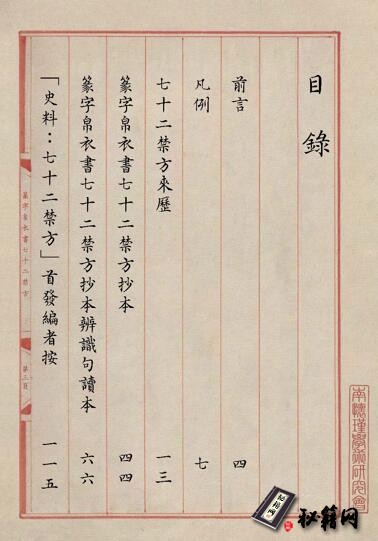 目錄
前言 四
凡例 七
七十二禁方來歷 一三
篆字帛衣書七十二禁方抄本 四四
篆字帛衣書七十二禁方抄本辨識句讀本 六六
「史料：七十二禁方」首發編者按 一一五
篆字帛衣書七十二禁方
第三頁
南懷瑾學術研究會
秘籍网